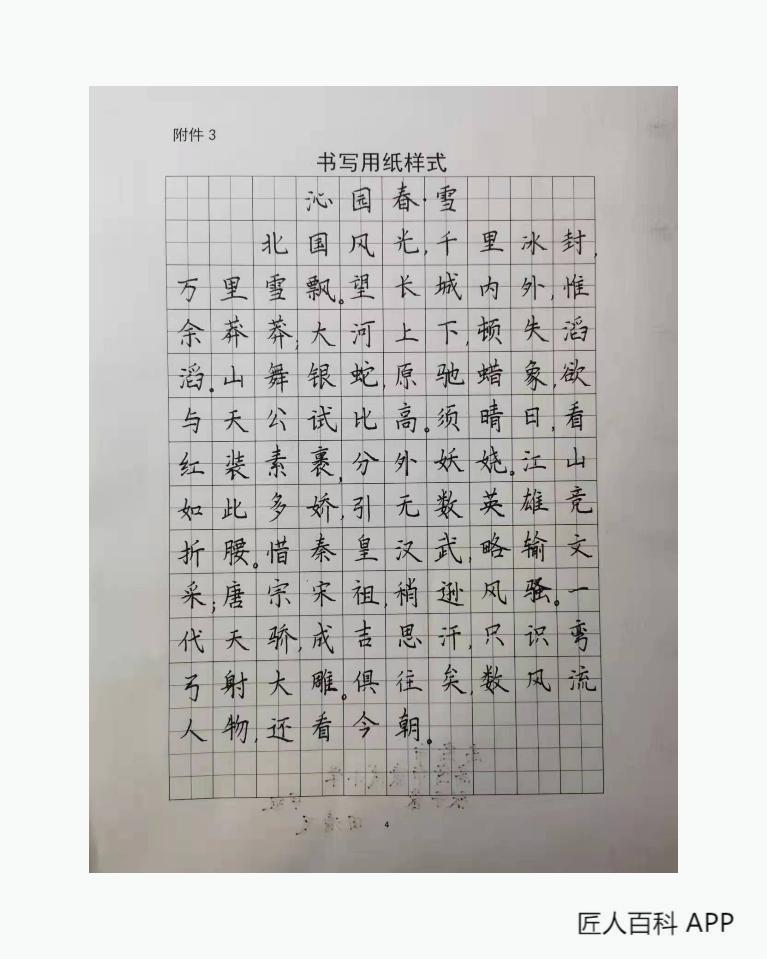 附件 3
书写用纸样式
沁园春·雪
北国风光,千里冰封,
万里雪飘。望长城内外,惟
余莽莽;大河上下,顿失滔
滔。山舞银蛇,原驰蜡象,欲
与天公试比高。须晴日,看
红装素裹,分外妖娆。江山
如此多娇,引无数英雄竞
折腰。惜秦皇汉武,略输文
采;唐宗宋祖,稍逊风骚。一
代天骄,成吉思汗,只识弯
弓射大雕。俱往矣,数风流
人物,还看今朝。
4
匠人百科 APP